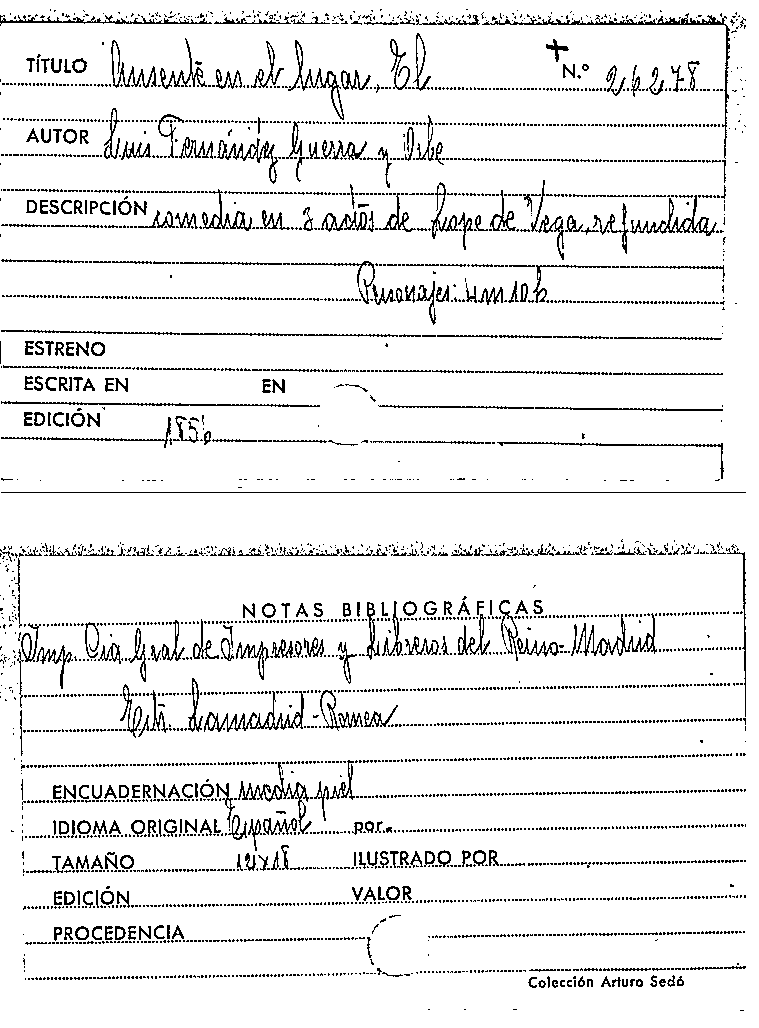 TÍTULO Ausente en el lugar, El + N.º 26278
AUTOR Luis Fernández Guerra y Orbe
DESCRIPCIÓN comedia en 3 actos de Lope de Vega, refundida
Personajes: 4 m 10 h
ESTRENO
ESCRITA EN EN
EDICIÓN 1856
NOTAS BIBLIOGRÁFICAS
Imp. Cia Gral de Impresores y Libreros del Reino - Madrid
Estr. Lamadrid - Romea
ENCUADERNACIÓN media piel
IDIOMA ORIGINAL Español por.
TAMAÑO 12x18 ILUSTRADO POR
EDICIÓN VALOR
PROCEDENCIA
Colección Arturo Sedó